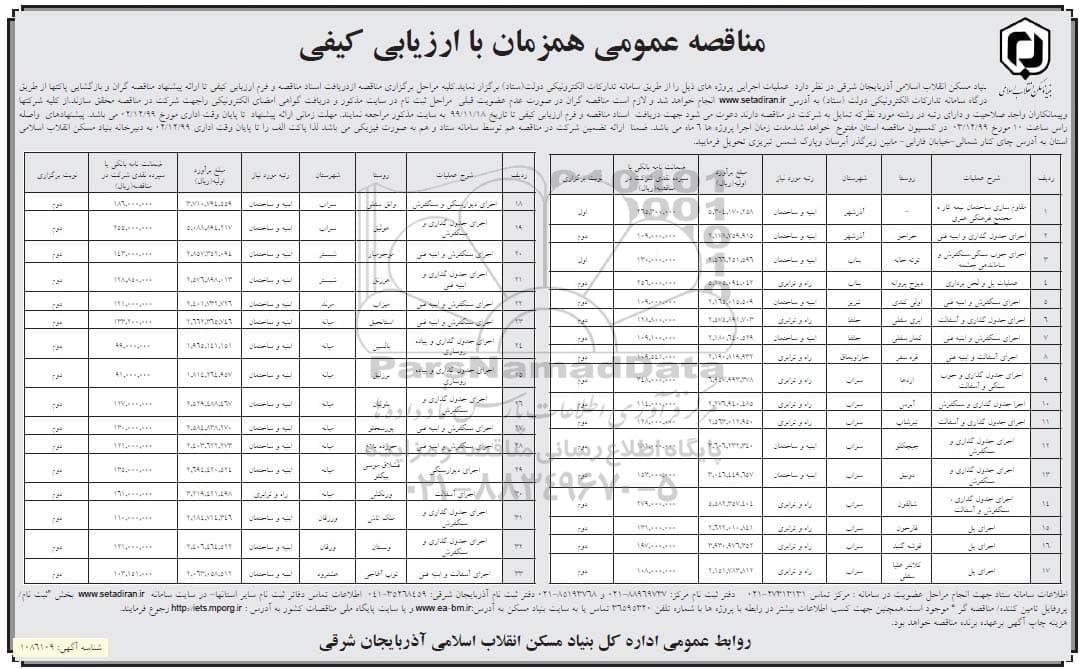 مناقصه عمومی همزمان با ارزیابی کیفی
بنیاد مسکن انقلاب اسلامی
بنیاد مسکن انقلاب اسلامی آذربایجان شرقی در نظر دارد عملیات اجرایی پروژه های ذیل را از طریق سامانه تدارکات الکترونیکی دولت(ستاد) برگزار نماید.کلیه مراحل برگزاری مناقصه ازدریافت اسناد مناقصه و فرم ارزیابی کیفی تا ارائه پیشنهاد مناقصه گران و بازگشایی پاکتها از طریق
درگاه سامانه تدارکات الکترونیکی دولت (ستاد) به آدرس www.setadiran.ir انجام خواهد شد و لازم است مناقصه گران در صورت عدم عضویت قبلی مراحل ثبت نام در سایت مذکور و دریافت گواهی امضای الکترونیکی راجهت شرکت در مناقصه محقق سازند.از کلیه شرکتها
وپیمانکاران واجد صلاحیت و دارای رتبه در رشته مورد نظرکه تمایل به شرکت در مناقصه دارند دعوت می شود جهت دریافت اسناد مناقصه و فرم ارزیابی کیفی تا تاریخ ۹۹/۱۱/۱۸ به سایت مذکور مراجعه نمایند. مهلت زمانی ارائه پیشنهاد تا پایان وقت اداری مورخ ۰۲/۱۲/۹۹ می باشد. پیشنهادهای واصله
راس ساعت ۱۰ مورخ ۰۳/۱۲/۹۹ در کمیسیون مناقصه استان مفتوح خواهد شد.مدت زمان اجرا پروژه ها ۶ ماه می باشد. ضمنا ارائه تضمین شرکت در مناقصه هم توسط سامانه ستاد و هم به صورت فیزیکی می باشد لذا پاکت الف را تا پایان وقت اداری ۰۲/۱۲/۹۹ به دبیرخانه بنیاد مسکن انقلاب اسلامی
استان به آدرس چای کنار شمالی-خیابان فارابی- مابین زیرگذر آبرسان وپارک شمس تبریزی تحویل فرمایید.
ردیف شرح عملیات روستا شهرستان رتبه مورد نیاز مبلغ برآورد اولیه(ریال) ضمانت نامه بانکی یا سپرده نقدی شرکت در مناقصه(ریال) نوبت برگزاری
۱ مقاوم سازی ساختمان نیمه کاره مجتمع فرهنگی هنری - آذرشهر ابنیه و ساختمان ۵,۳۰۴,۱۷۰,۲۵۸ ۲۶۵,۳۰۰,۰۰۰ اول
۲ اجرای جدول گذاری و ابنیه فنی خراجو آذرشهر ابنیه و ساختمان ۲,۱۷۷,۷۵۹,۹۱۵ ۱۰۹,۰۰۰,۰۰۰ دوم
۳ اجرای جوب سنگی،سنگفرش و ساماندهی چشمه توته خانه بناب ابنیه و ساختمان ۲,۵۶۶,۲۵۱,۵۹۶ ۱۳۰,۰۰۰,۰۰۰ اول
۴ عملیات پل و لجن برداری دیزج پروانه بناب راه و ترابری ۵,۱۰۵,۰۹۴,۰۴۲ ۲۵۶,۰۰۰,۰۰۰ دوم
۵ اجرای سنگفرش و ابنیه فنی اوتی کندی تبریز ابنیه و ساختمان ۲,۱۶۵,۰۱۵,۵۰۹ ۱۰۹,۰۰۰,۰۰۰ دوم
۶ اجرای جدول گذاری و آسفالت ایری سفلی جلفا راه و ترابری ۲,۵۷۵,۸۹۱,۷۰۳ ۱۲۸,۸۰۰,۰۰۰ دوم
۷ اجرای سنگفرش و ابنیه فنی کمار سفلی جلفا ابنیه و ساختمان ۲,۱۸۰,۶۴۰,۵۲۹ ۱۰۹,۱۰۰,۰۰۰ دوم
۸ اجرای آسفالت و ابنیه فنی قره سفر چاراویماق راه و ترابری ۲,۱۹۰,۸۱۹,۹۳۲ ۱۰۹,۵۴۱,۰۰۰ دوم
۹ اجرای جدول گذاری و جوب سنگی و آسفالت اردها سراب راه و ترابری ۶,۹۴۷,۹۹۳,۳۷۸ ۳۴۸,۰۰۰,۰۰۰ دوم
۱۰ اجرا جدول گذاری و سنگفرش آبرس سراب راه و ترابری ۲,۲۷۶,۹۴۰,۴۸۵ ۱۱۴,۰۰۰,۰۰۰ دوم
۱۱ اجرای جدول گذاری و آسفالت تیرشاب سراب راه و ترابری ۲,۵۶۳,۰۱۲,۹۵۰ ۱۲۸,۰۰۰,۰۰۰ دوم
۱۲ اجرای جدول گذاری و سنگفرش جیچکلو سراب ابنیه و ساختمان ۳,۶۰۶,۲۳۲,۳۴۰ دوم
۱۳ اجرای جدول گذاری و سنگفرش دونیق سراب ابنیه و ساختمان ۳,۰۴۶,۴۴۹,۶۵۷ ۱۵۳,۰۰۰,۰۰۰ دوم
۱۴ اجرای جدول گذاری ، سنگفرش و آسفالت شالقون سراب راه و ترابری ۵,۵۸۲,۳۵۷,۴۰۴ ۲۷۹,۰۰۰,۰۰۰ دوم
۱۵ اجرای پل قارخون سراب راه و ترابری ۲,۶۲۲,۰۱۰,۸۴۱ ۱۳۱,۰۰۰,۰۰۰ دوم
۱۶ اجرای پل قوشه گنبد سراب راه و ترابری ۳,۹۳۰,۹۷۶,۳۵۲ ۱۹۷,۰۰۰,۰۰۰ دوم
۱۷ اجرای پل کلانتر علیا سفلی سراب راه و ترابری ۲,۱۵۱,۷۸۳,۸۱۲ ۱۰۸,۰۰۰,۰۰۰ دوم
ردیف شرح عملیات روستا شهرستان رتبه مورد نیاز مبلغ برآورد اولیه(ریال) ضمانت نامه بانکی یا سپرده نقدی شرکت در مناقصه(ریال) نوبت برگزاری
۱۸ اجرای دیوارسنگی و سنگفرش وانق سفلی سراب ابنیه و ساختمان ۳,۷۱۰,۷۹۴,۵۵۹ ۱۸۶,۰۰۰,۰۰۰ دوم
۱۹ اجرای جدول گذاری و سنگفرش هوتین سراب ابنیه و ساختمان ۵,۰۸۸,۸۹۴,۲۱۷ ۲۵۵,۰۰۰,۰۰۰ دوم
۲۰ اجرای سنگفرش و ابنیه فنی شبستر ابنیه و ساختمان ۲,۸۵۷,۳۵۲,۰۹۴ ۱۴۳,۰۰۰,۰۰۰ دوم
۲۱ اجرای جدول گذاری و ابنیه فنی شبستر ابنیه و ساختمان ۲,۵۷۶,۸۹۸,۰۱۳ ۱۲۸,۸۵۰,۰۰۰ دوم
۲۲ اجرای سنگفرش و ابنیه فنی میزاب مرند ابنیه و ساختمان ۲,۴۰۱,۸۳۲,۷۲۶ ۱۲۱,۰۰۰,۰۰۰ دوم
۲۳ اجرای سنگفرش و ابنیه فنی استانجیق میانه ابنیه و ساختمان ۲,۶۶۲,۳۶۵,۷۴۶ ۱۳۳,۲۰۰,۰۰۰ دوم
۲۴ اجرای جدول گذاری و پیاده روسازی بالسین میانه ابنیه و ساختمان ۱,۹۶۵,۱۴۱,۱۵۱ ۹۹,۰۰۰,۰۰۰ دوم
۲۵ اجرای جدول گذاری و پیاده روسازی برزلیق میانه ابنیه و ساختمان ۱,۸۱۴,۲۶۴,۹۵۷ ۹۱,۰۰۰,۰۰۰ دوم
۲۶ اجرای جدول گذاری و سنگفرش بلوکان میانه ابنیه و ساختمان ۲,۵۲۹,۴۸۸,۴۶۷ ۱۲۷,۰۰۰,۰۰۰ دوم
۲۷ اجرای سنگفرش و ابنیه فنی پورسخلو میانه ابنیه و ساختمان ۲,۵۸۴,۸۳۸,۲۷۰ ۱۳۰,۰۰۰,۰۰۰ دوم
۲۸ اجرای سنگفرش و ابنیه فنی میانه ابنیه و ساختمان ۲,۴۰۳,۶۲۲,۲۷۳ ۱۲۱,۰۰۰,۰۰۰ دوم
۲۹ اجرای دیوارسنگی قشلاق موسی بیگلو میانه ابنیه و ساختمان ۲,۶۹۴,۴۲۰,۵۲۴ ۱۳۵,۰۰۰,۰۰۰ دوم
۳۰ اجرای آسفالت ورنکش میانه راه و ترابری ۳,۲۱۹,۴۲۱,۴۹۸ ۱۶۱,۰۰۰,۰۰۰ دوم
۳۱ اجرای جدول گذاری و سنگفرش ملک تاش ورزقان ابنیه و ساختمان ۲,۱۸۴,۷۱۴,۳۴۶ ۱۱۰,۰۰۰,۰۰۰ دوم
۳۲ اجرای جدول گذاری و سنگفرش ونستان ورزقان ابنیه و ساختمان ۲,۴۰۶,۴۶۴,۵۱۲ ۱۲۱,۰۰۰,۰۰۰ دوم
۳۳ اجرای آسفالت و ابنیه فنی توپ آغاجی هشترود ابنیه و ساختمان ۲,۰۶۳,۰۵۸,۵۱۲ ۱۰۳,۱۵۱,۰۰۰ دوم
ParsNamadData
پایگاه اطلاع رسانی مناقصه و مزایده
۰۲۱-۸۸۳۴۹۶۷۰-۵
اطلاعات سامانه ستاد جهت انجام مراحل عضویت در سامانه : مرکز تماس ۲۷۳۱۳۱۳۱-۰۲۱ دفتر ثبت نام مرکز: ۸۸۹۶۹۷۳۷-۰۲۱ و ۸۵۱۹۳۷۶۸-۰۲۱ دفتر ثبت نام آذربایجان شرقی: ۳۵۲۶۸۴۵۹-۰۴۱ اطلاعات تماس دفاتر ثبت نام سایر استانها- در سایت سامانه www.setadiran.ir بخش "ثبت نام/
پروفایل تامین کننده/ مناقصه گر " موجود است.همچنین جهت کسب اطلاعات بیشتر در رابطه با پروژه ها با شماره تلفن ۳۶۵۹۵۳۲۰ تماس یا به سایت بنیاد مسکن به آدرس:www.ea-bm.ir و یا سایت پایگاه ملی مناقصات کشور به آدرس : http://iets.mporg.ir رجوع فرمایند.
هزینه چاپ آگهی برعهده برنده مناقصه خواهد بود.
روابط عمومی اداره کل بنیاد مسکن انقلاب اسلامی آذربایجان شرقی
شناسه آگهی: ۱۰۸۶۱۰۹